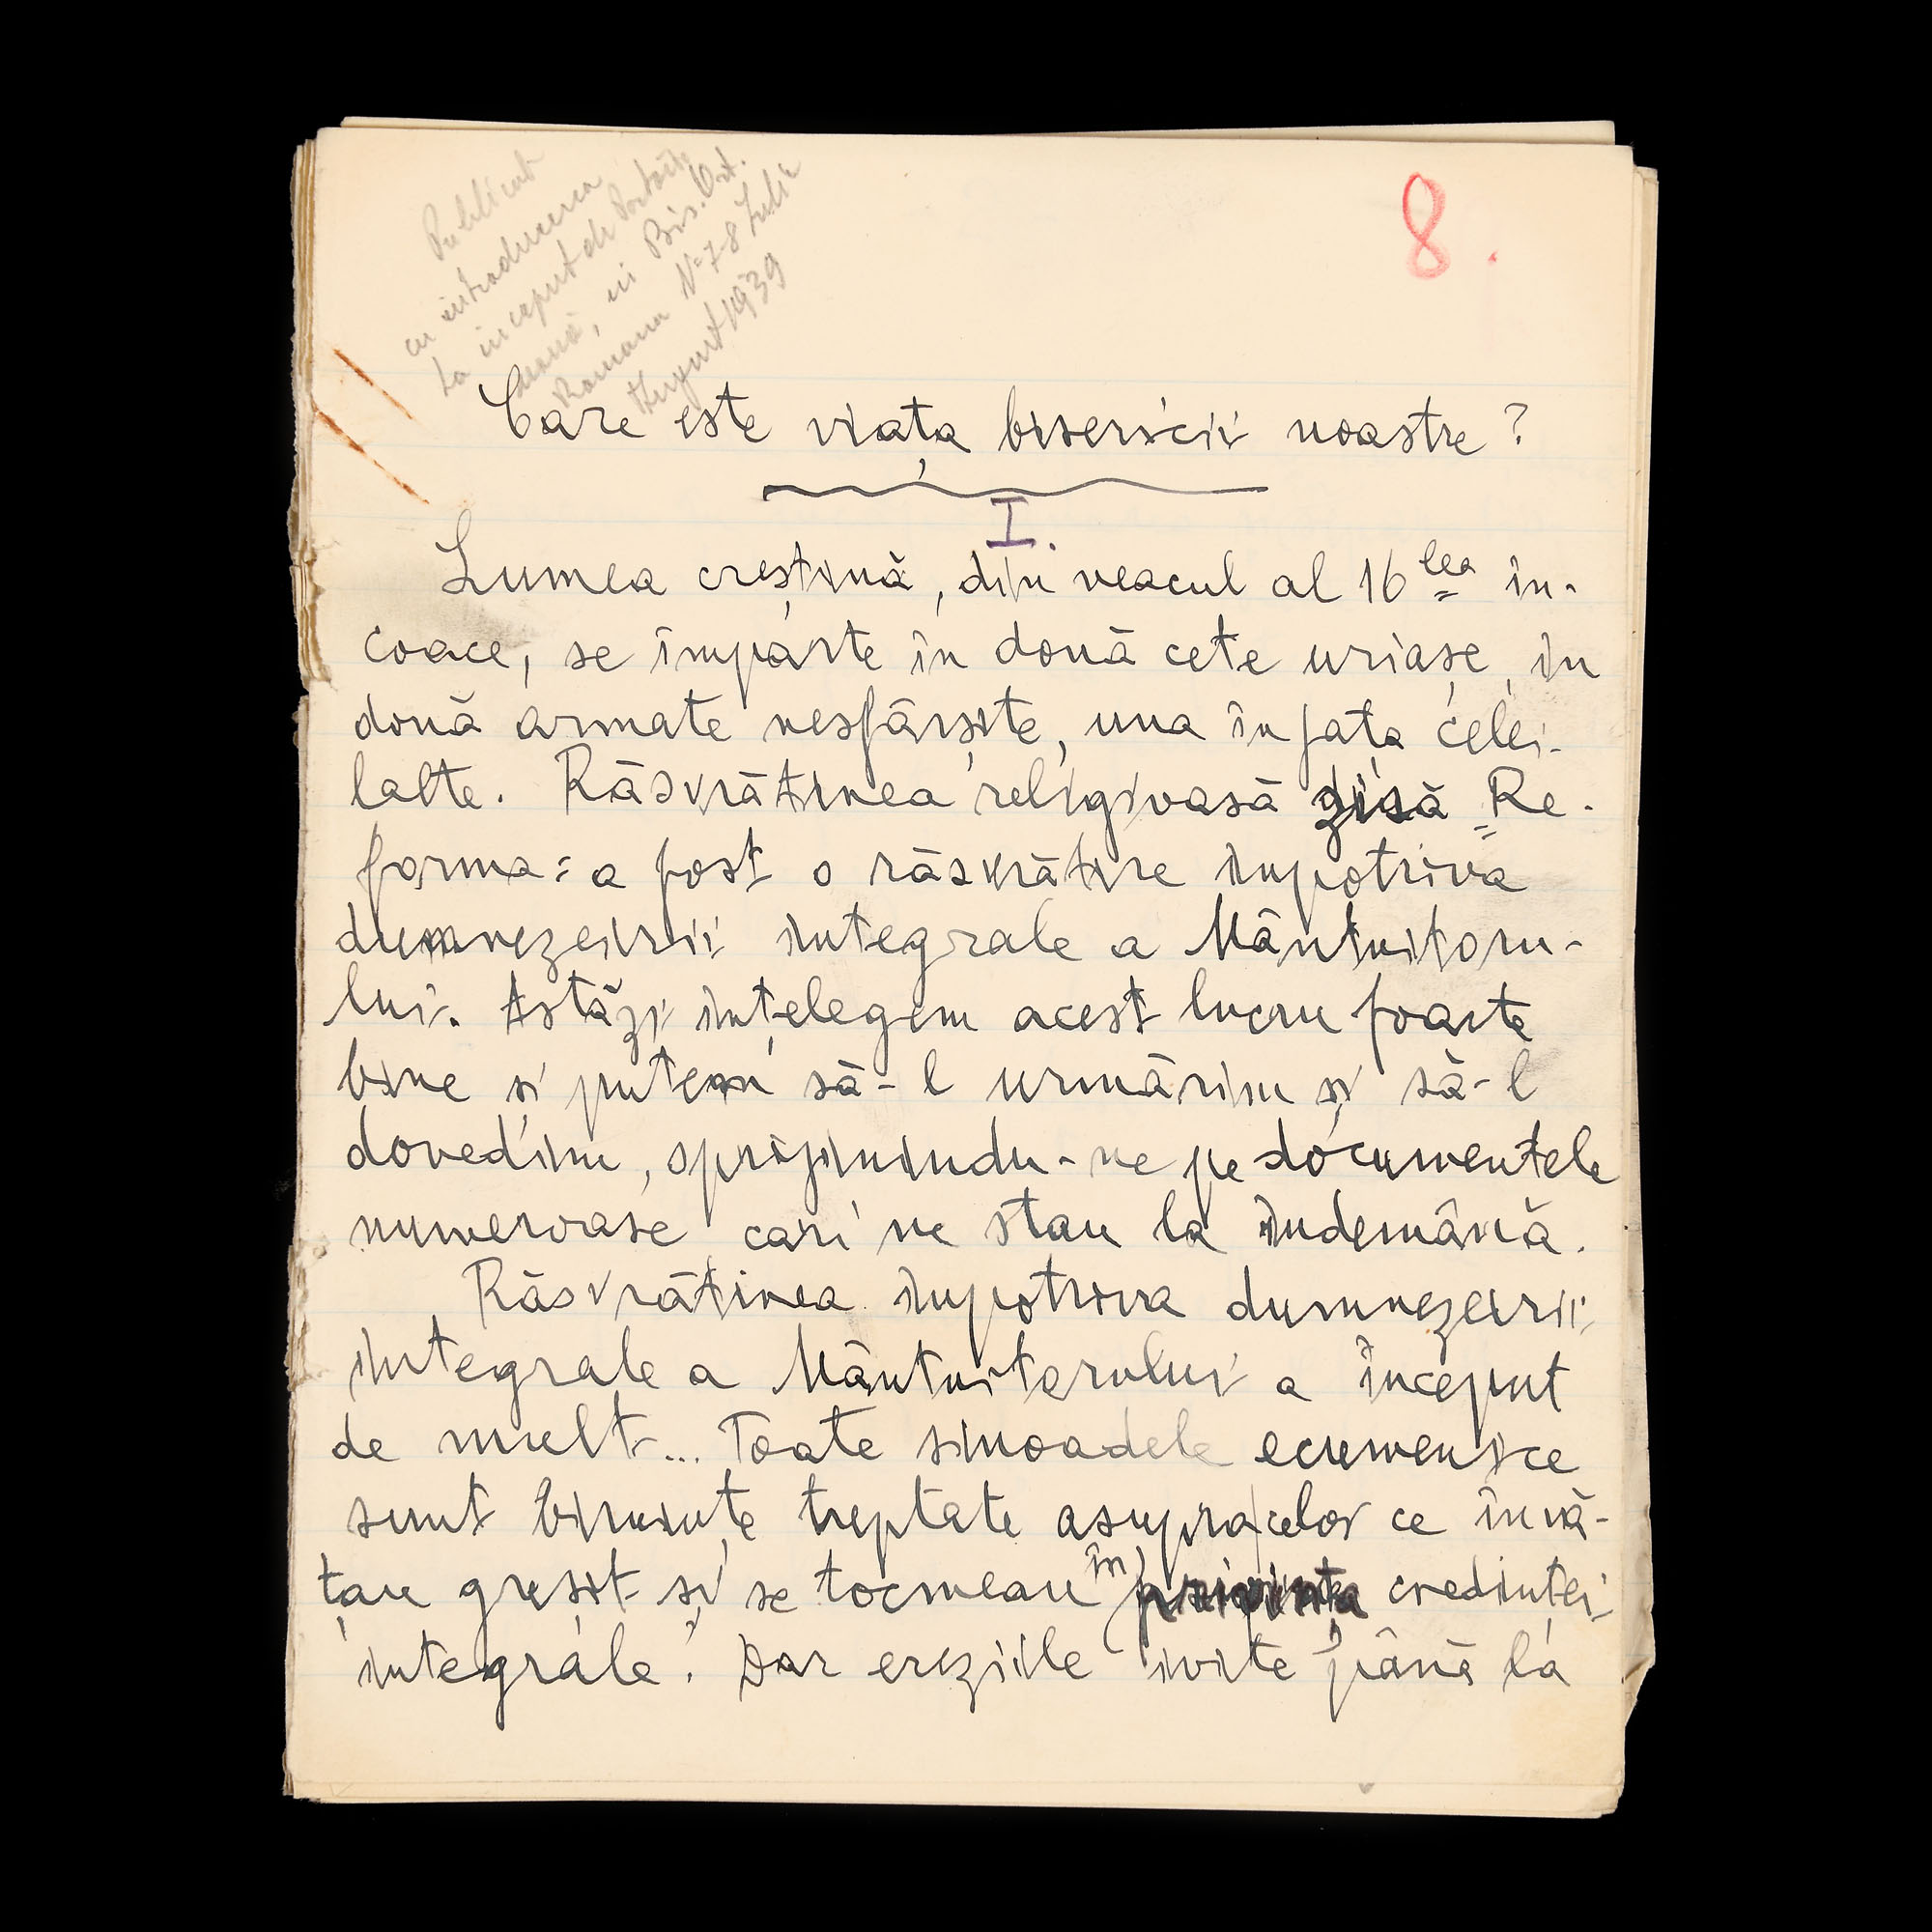 Publicat
cu introducerea
La inceput de
in Bis. Ort.
Romana Nº 7-8 Iulie
August 1939
8.
Care este viața bisericii noastre?
I.
Lumea creștină, din veacul al 16 lea în-
coace, se împarte în două cete uriașe, în
două armate nesfârșite, una în fața celei-
lalte. Răsvrătirea religioasă zisă „Re-
forma" a fost o răsvrătire împotriva
dumnezeirii integrale a Mântuitoru-
lui. Astăzi înțelegem acest lucru foarte
bine și putem să-l urmărim și să-l
dovedim, sprijinindu-ne pe documentele
numeroase cari ne stau la îndemână.
Răsvrătirea împotriva dumnezeirii
integrale a Mântuitorului a început
de mult... Toate sinoadele ecumenice
sunt biruințe treptate asupra celor ce învă-
țau greșit și se tocmeau în privința credinței
integrale. Dar ereziile ivite până la